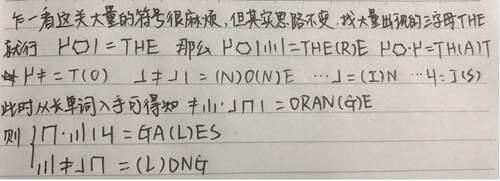 乍一看这关大量的符号很麻烦，但其实思路不变，找大量出现的三字母THE
就行 = THE 那么 = THE(R)E = TH(A)T
= T(O) = (N)O(N)E … = (I)N … = I(S)
此时从长单词入手可得知 = ORAN(G)E
则 = GA(L)ES
= (L)ONG